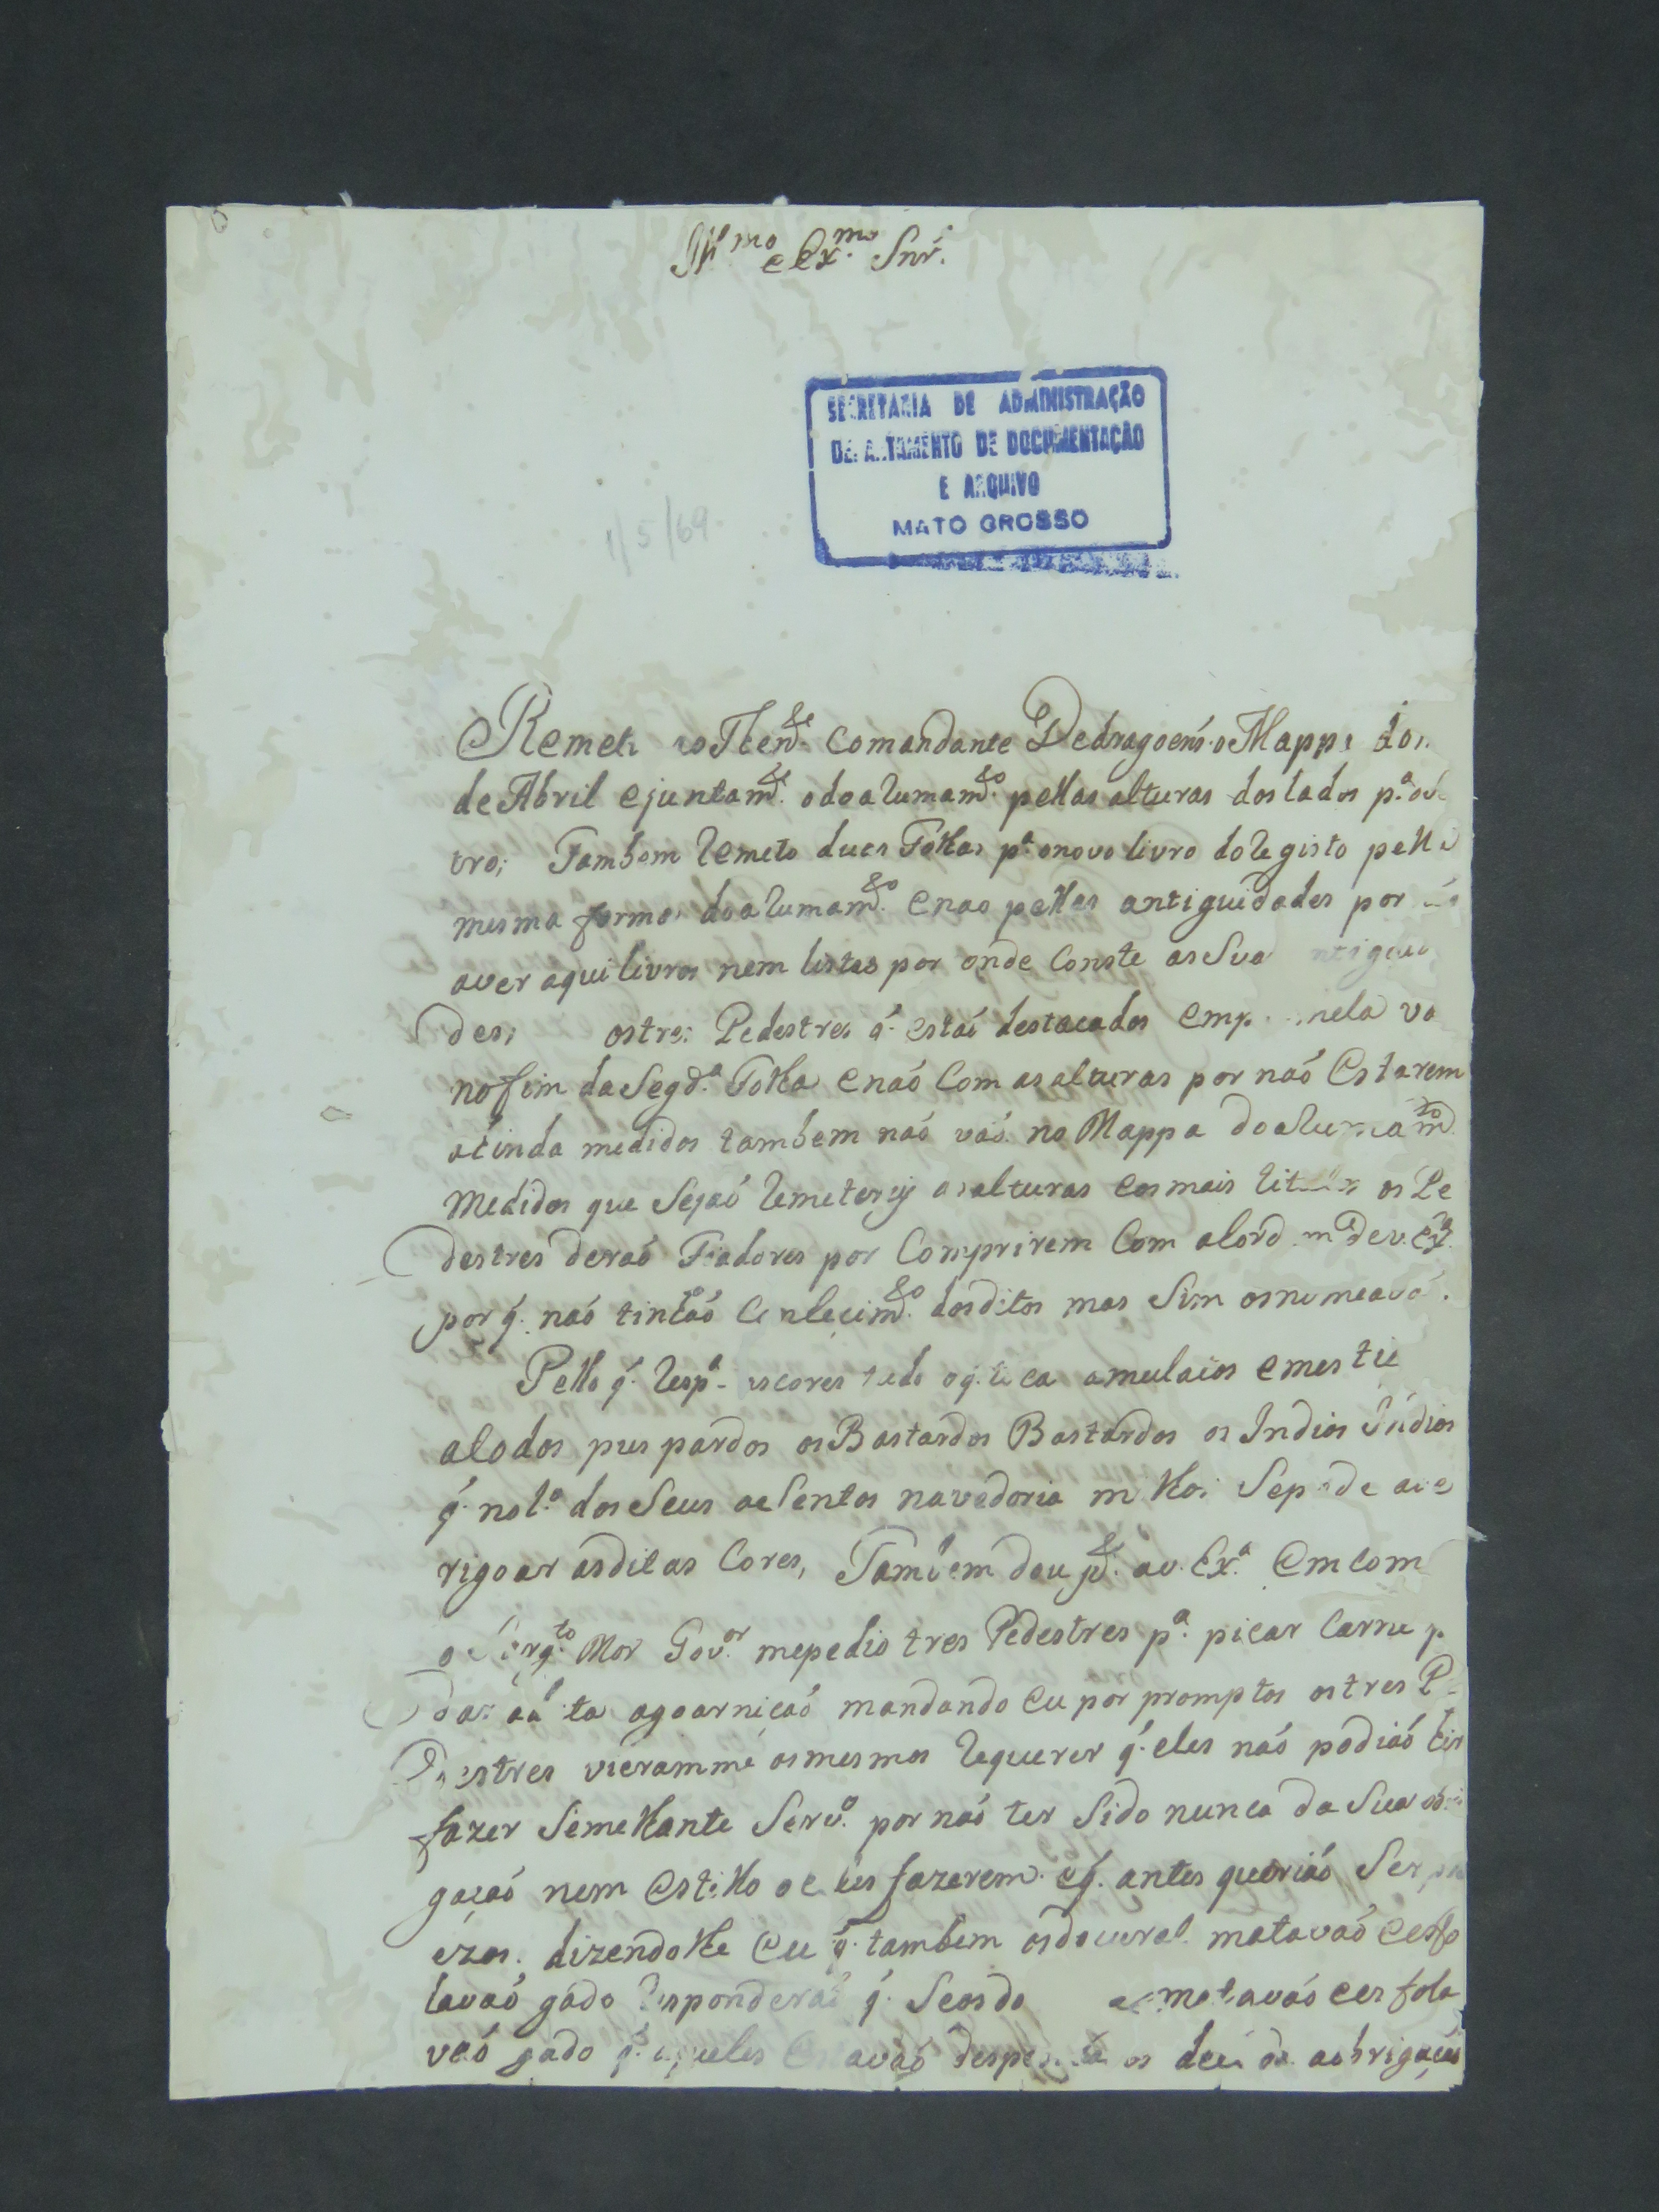 Ill.mo e Ex.mo Snr.
SECRETARIA DE ADMINISTRAÇÃO
DEPARTAMENTO DE DOCUMENTAÇÃO
E ARQUIVO
MATO GROSSO
1/5/69
Remeti ao Thend.e Comandante Dedragoens o Mappa do
de Abril ejuntamd.e odoalumamd.o pellas alturas dos lados p.a
tro; Tambem Remeto duas Folhas p.a onovo livro do Registo pella
mesma forma doalumamd.o enao pellas antiguidades por
aver aqui livros nem listas por onde Conste as Sua ntigui
des; ostres Pedestres q. estaõ destacados em nela va
nofim da Segd.a Folha enaõ Com as alturas por naõ Estarem
ainda medidos tambem naõ vaõ no Mappa doalumamd.to
Medidos que Sejaõ Remeterey as alturas eosmais os Pe
destres deraõ Fiadores por Comprirem Com alord m de v. Ex.a
por q. naõ tinhaõ Conhecimd.o dosditos mas Sim osnomeavaõ.
Pello q. Resp.a as cores tudo oq. toca amulatos emesti
alodos pus pardos os Bastardos Bastardos os Indios Indios
q. nol.o dos Seus acentos navedoria m lhor Sepode ave
rigoar asditas Cores, Tambem dou pd.e av. Ex.a Emcom
o Sarg.to Mor Gov.or mepedio tres Pedestres p.a picar Carne p
dar agoarniçaõ mandando Eu por promptos ostres P
destres vieramme osmesmos Requerer q. eles naõ podiaõ hir
fazer Semelhante Serv.o por naõ ter Sido nunca da Sua obri
gaçaõ nem Estillo eles fazerem eq. antes queriaõ Ser
ezos. dizendolhe Eu q. tambem osdocural matavaõ eesfo
lavaõ gado Responderaõ q. Seosdo matavaõ eesfola
vaõ gado q. aqueles Estavaõ os da aobrigaçaõ